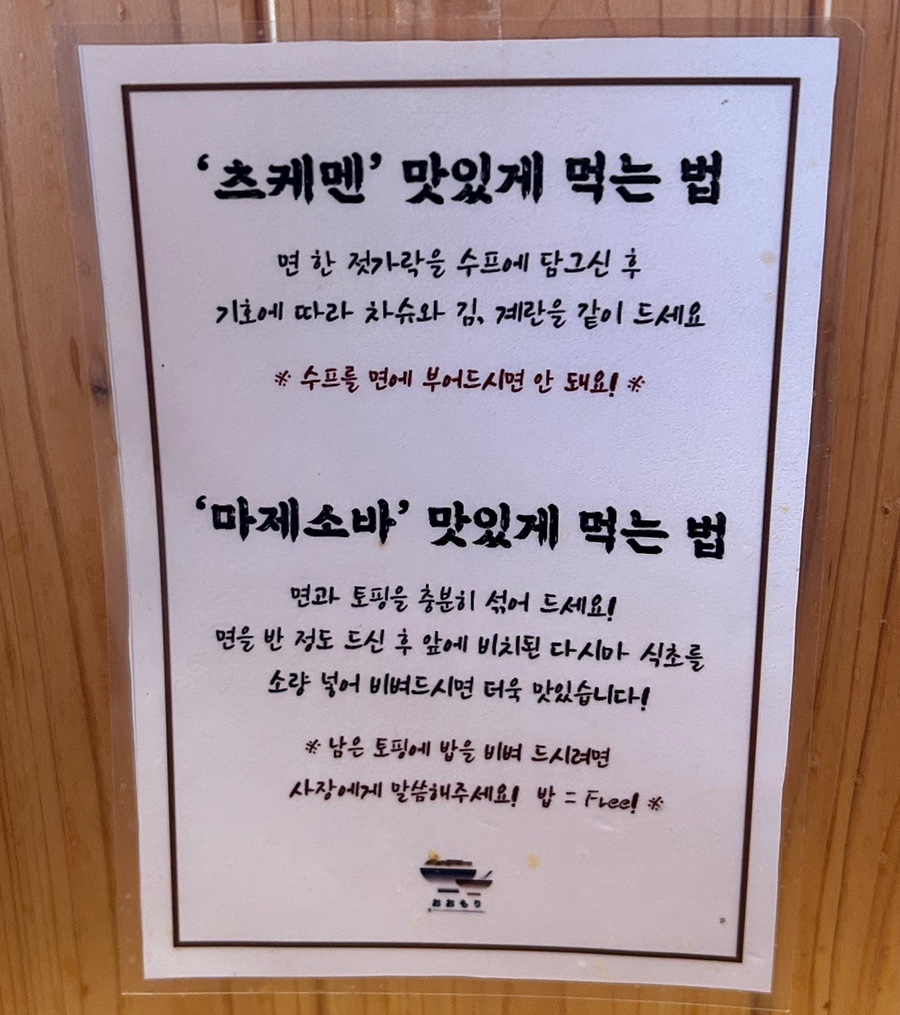 ‘츠케멘’ 맛있게 먹는 법
면 한 젓가락을 수프에 담그신 후
기호에 따라 차슈와 김, 계란을 같이 드세요
※ 수프를 면에 부어드시면 안 돼요! ※
‘마제소바’ 맛있게 먹는 법
면과 토핑을 충분히 섞어 드세요!
면을 반 정도 드신 후 앞에 비치된 다시마 식초를
소량 넣어 비벼드시면 더욱 맛있습니다!
※ 남은 토핑에 밥을 비벼 드시려면
사장에게 말씀해주세요! 밥 = Free! ※
おおもり